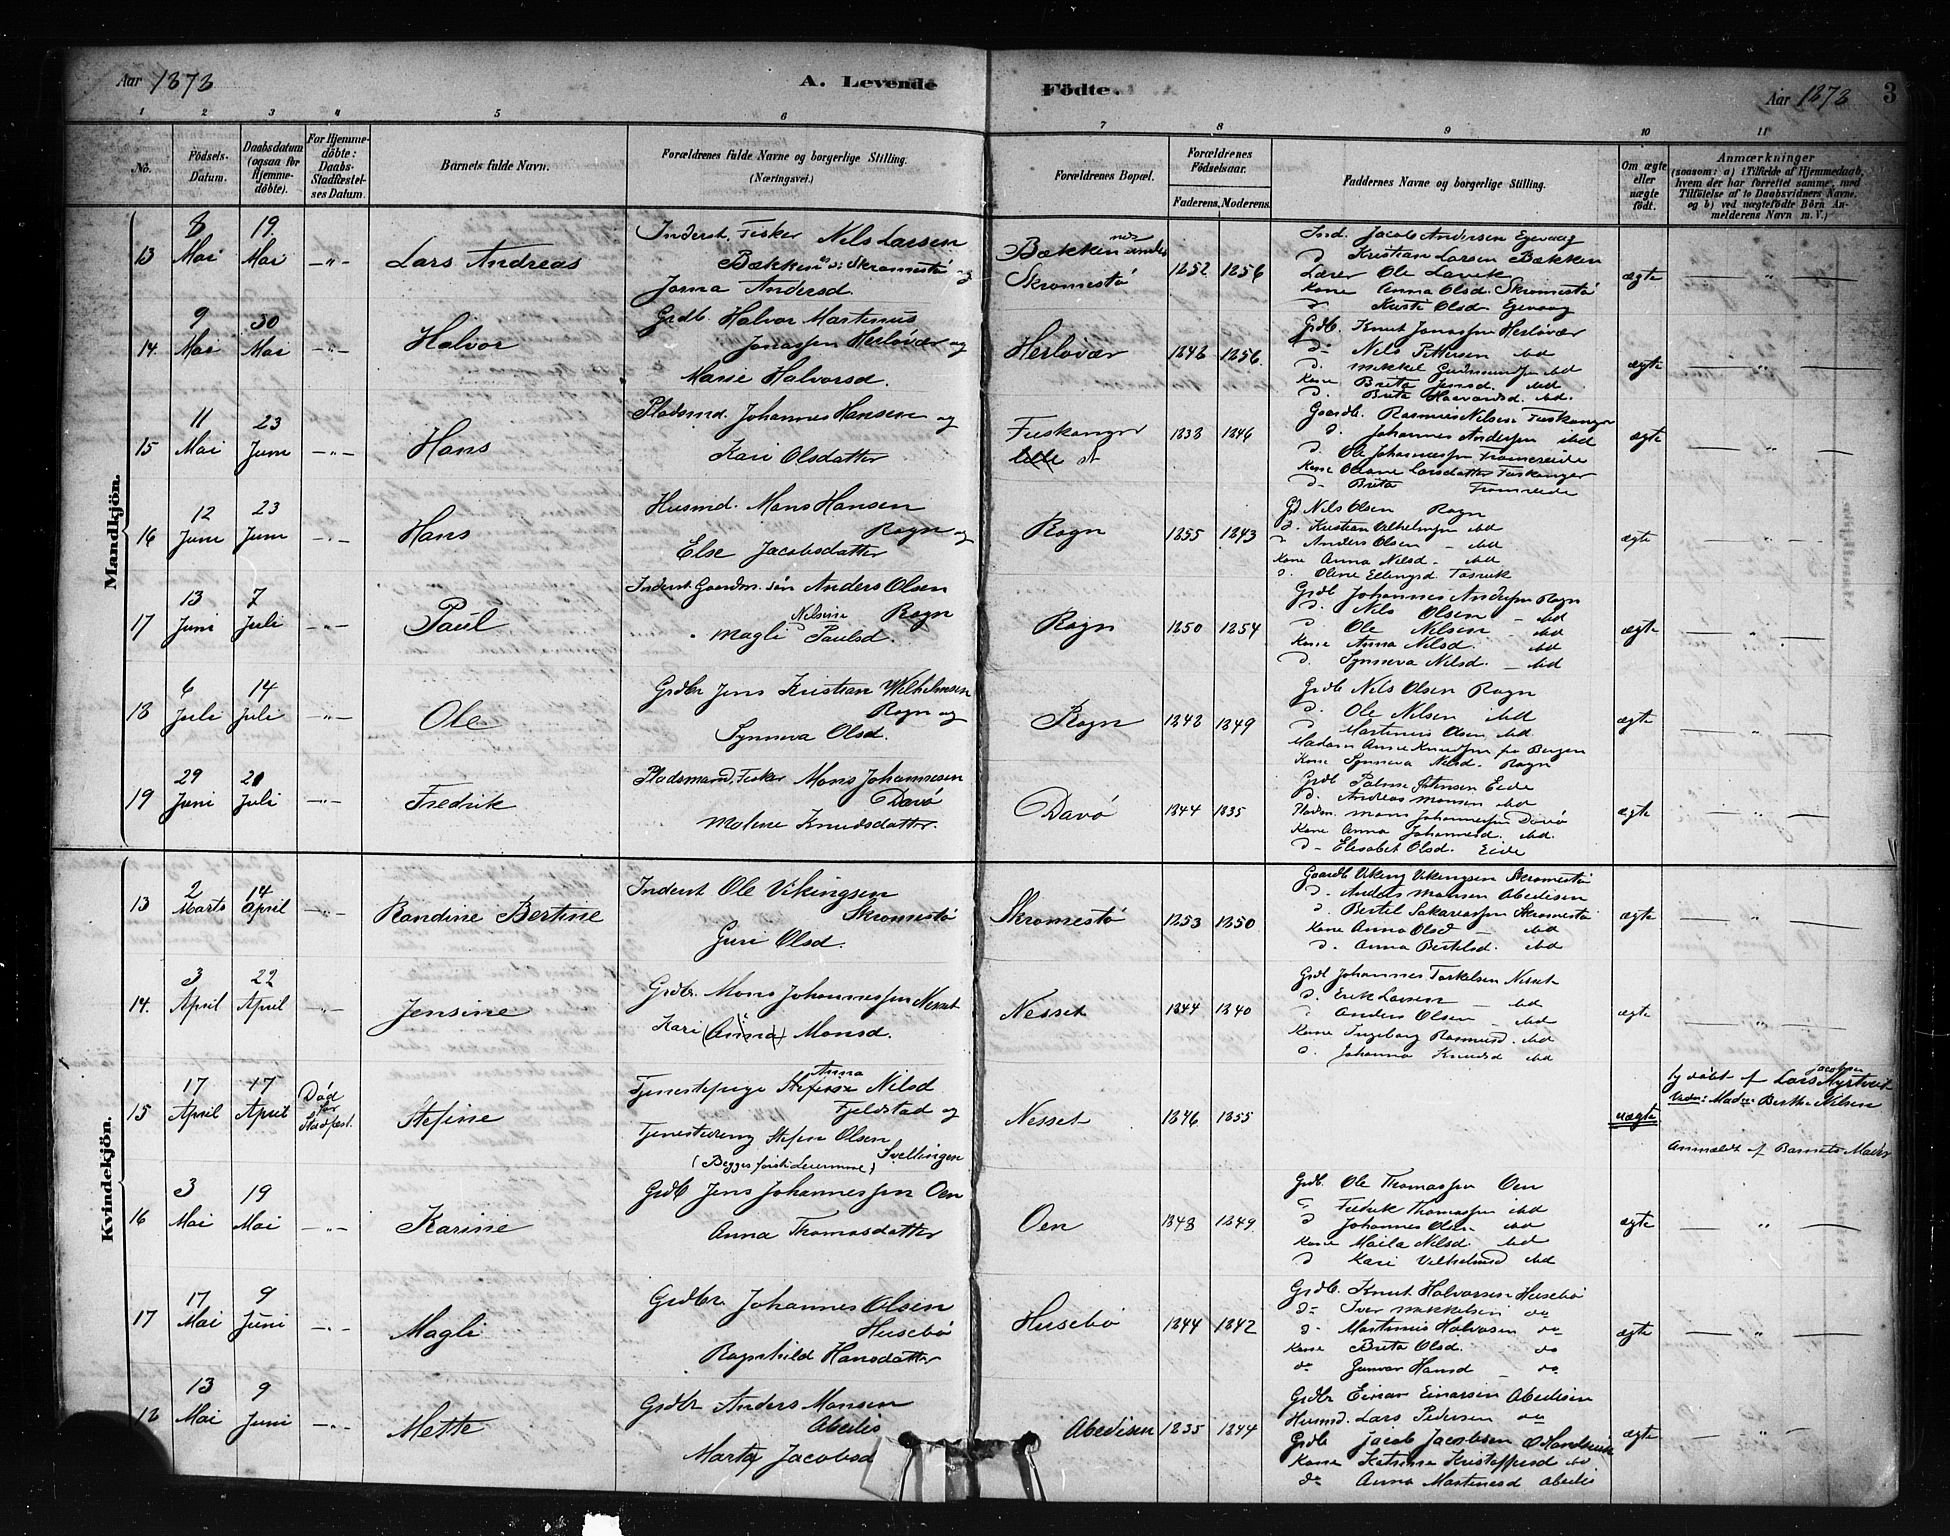 Aar 1878
A. Levende
Födte.
Aar 1878
3
1 2 3 4 5 6 7 8 9 10 11
No.
Födsels-
Datum.
Daabsdatum
(ogsaa for
Hjemme-
döbte).
For Hjemme-
döbte:
Daabs-
Stadfæstel-
ses Datum.
Barnets fulde Navn.
Forældrenes fulde Navne og borgerlige Stilling.
(Næringsvei.)
Forældrenes Bopæl.
Forældrenes
Födselsaar.
Faderens. Moderens.
Faddernes Navne og borgerlige Stilling.
Om ægte
eller
uægte
födt.
Anmærkninger
(saasom: a) i Tilfælde af Hjemmedaab,
hvem der har forrettet samme, med
Tilföielse af to Daabsvidners Navne,
og b) ved uægtefödte Börn An-
melderens Navn m. V.)
Mandkjön.
13
8 Mai
19. Mai
Lars Andreas
Inderst, Fisker Nils Larsen
Bækken Skromestø og
Anders d.
Bækken
Skromestø
1852 1856
Ind. Jacob Andersen Egevaag
D Kristian Larsen Bækken
Lærer Ole Lavik
Kone Anna Olsd. Skromestø
D. Olsd Egevaag
ægte
14.
9 Mai
30 Mai
Halvor
Grdb. Halvor Martinus
Jonassen Herløvær og
Marie Halvorsd.
Herløvær
1848 1856
Grdb. Knut Jonassen Herløvær
D- Nils Pettersen ibd
D. Mikkel Gudmundsen ibd
Kone Brita Jensd. ibd
D. Brita Haavardsd. ibd.
ægte
15
11 Mai
23 Juni
Hans
Pladsmd. Johannes Hansen og
Kari Olsdatter
Fuskanger
1838 1846
Gaardb. Rasmus Nilsen Fuskanger
D. Johannes Andersen ibd
D. Ole Johannessen Tramereide
Kone Oliane Larsdatter Fuskanger
D- Brita
ægte
16
12 Juni
23 Juni
Hans
Husmd. Mons Hansen
Rogn og
Else Jacobsdatter
Rogn
1855 1843
Gd Nils Olsen Rogn
D. Kristian Vilhelmsen ibd
D Anders Olsen - ibd
Kone Anna Nilsd. ibd
D. Oline Ellingsd. Tosvik
ægte
17
13 Juni
7 Juli
Paul
Inderst Gaardm. søn Anders Olsen
Rogn
Magli Nilsine Paulsd.
Rogn
1850 1854
Grdb Johannes Andersen Rogn
D. Nils Olsen - ibd
D Ole Nilsen - ibd
Kone Anna Nilsd. ibd
D. Synneva Nilsd. - ibd
ægte
18
6 Juli
14 Juli
Ole
Grdbr Jens Kristian Wilhelmsen
Rogn og
Synneva Olsd.
Rogn
1848 1849
Grdb Nils Olsen Rogn
D. Ole Nilsen ibid
D Martinus Olsen ibd
Madam Anne Knudsen fra Bergen
Kone Synneva Nilsd. Rogn
ægte
19
29 Juni
21 Juli
Fredrik
Pladsmand, Fisker Mons Johannesen
Davø
Malene Knudsdatter.
Davø
1844 1835
Grdb Palme Ostensen Eide
D. Andreas Monsen ibd
Mons Johannessen Davø
Kone Anna Johannesd. ibd.
D- Elisabet Olsd. Eide
ægte
Kvindekjön.
13
2 Marts
14 April
Randine Bertine
Inderst Ole Vikingsen
Skromestø
Guri Olsd.
Skromestø
1853 1850
Gaardb Viking Vikingsen Skromestø
D. Anders Monsen Abedisen
D. Bertel Sakariassen Skromestø
Kone Anna Olsd - ibd
D. Anna Bertelsd. ibd
ægte
14.
3 April
22 April
Jensine
Grdbr. Mons Johannessen Nesset
Kari (Anna) Monsd.
Nesset
1844 1840
Grdb Johannes Torkelsen Nesset
D. Erik Larsen - ibd
D Anders Olsen - ibd
Kone Ingeborg Rasmusd. ibd
D. Johanna Knudsd ibd
ægte
15
17 April
17 April
Død før Stadfæst.
Stefine
Tjenestepige Anna Nilsd
Fjeldstad og
Tjenestedreng Stefen Olsen
Svellingen
(Begges første Leiermaal)
Nesset
1846 1855
uægte
Hj døbt af Lars Jacobsen Myrtveit
Madm: Berthe Nilsen
Anmeldt af Barnets Moder
16
3 Mai
19 Mai
Karine
Grdb Jens Johannessen Oen
Anna Thomasdatter
Oen
1848 1849.
Grdb. Ole Thomassen Oen
D Fredrik Thomassen ibd
D Johannes Olsen ibd
Kone Maila Nilsd. ibd
D Kari Vilhelmsd ibd
ægte
17
17 Mai
9 Juni
Magli
Grdbr. Johannes Olsen
Husebø
Ragnhild Hansdatter
Husebø
1844 1842
Grdb. Knut Halvorsen Husebø
D- Iver Mikkelsen do
D. Martinus Halvorsen do
Kone Brita Olsd. do
do Gunvor Hansd - do
ægte
18
13 Mai
9 Juni
Mette
Grdbr Anders Monsen
Abedis
Marta Jacobsd
Abedisen
1835 1844
Grdbr Einar Einarsen Abedisen
Husmd. Lars Pedersen do
Grdb Jacob Jacobsen
Kone Katrine Kristoffersd do
do Anna Martinesd Abedis
ægte